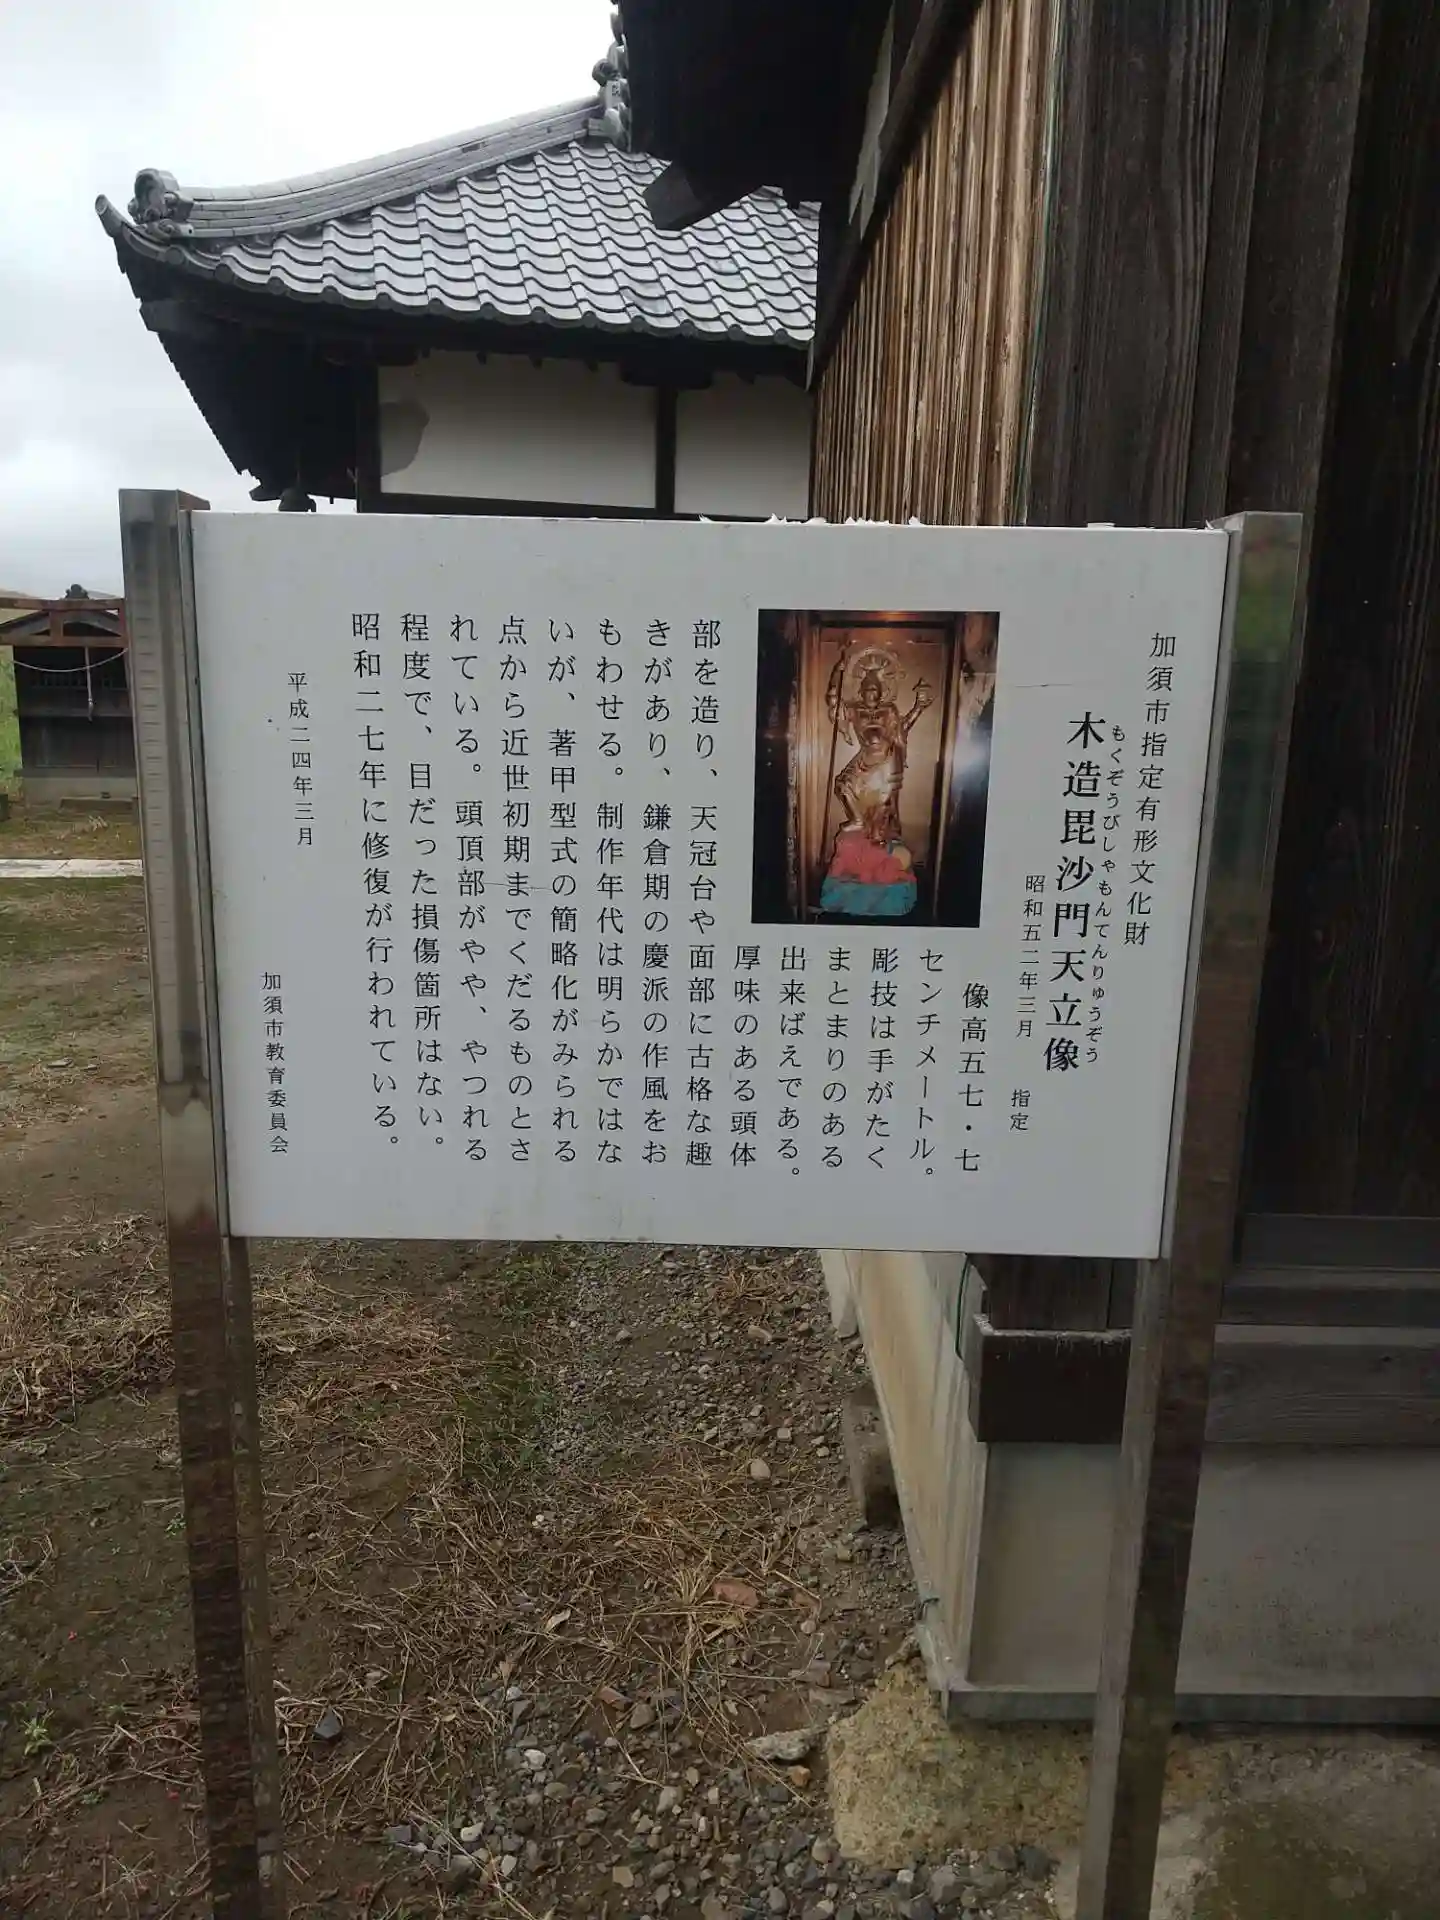 加須市指定有形文化財
もくぞうびしゃもんてんりゅうぞう
木造毘沙門天立像
昭和五二年三月 指定
像高五七・七
センチメートル。
彫技は手がたく
まとまりのある
出来ばえである。
厚味のある頭体
部を造り、天冠台や面部に古格な趣
きがあり、鎌倉期の慶派の作風をお
もわせる。制作年代は明らかではな
いが、著甲型式の簡略化がみられる
点から近世初期までくだるものとさ
れている。頭頂部がやや、やつれる
程度で、目だった損傷箇所はない。
昭和二七年に修復が行われている。
平成二四年三月
加須市教育委員会